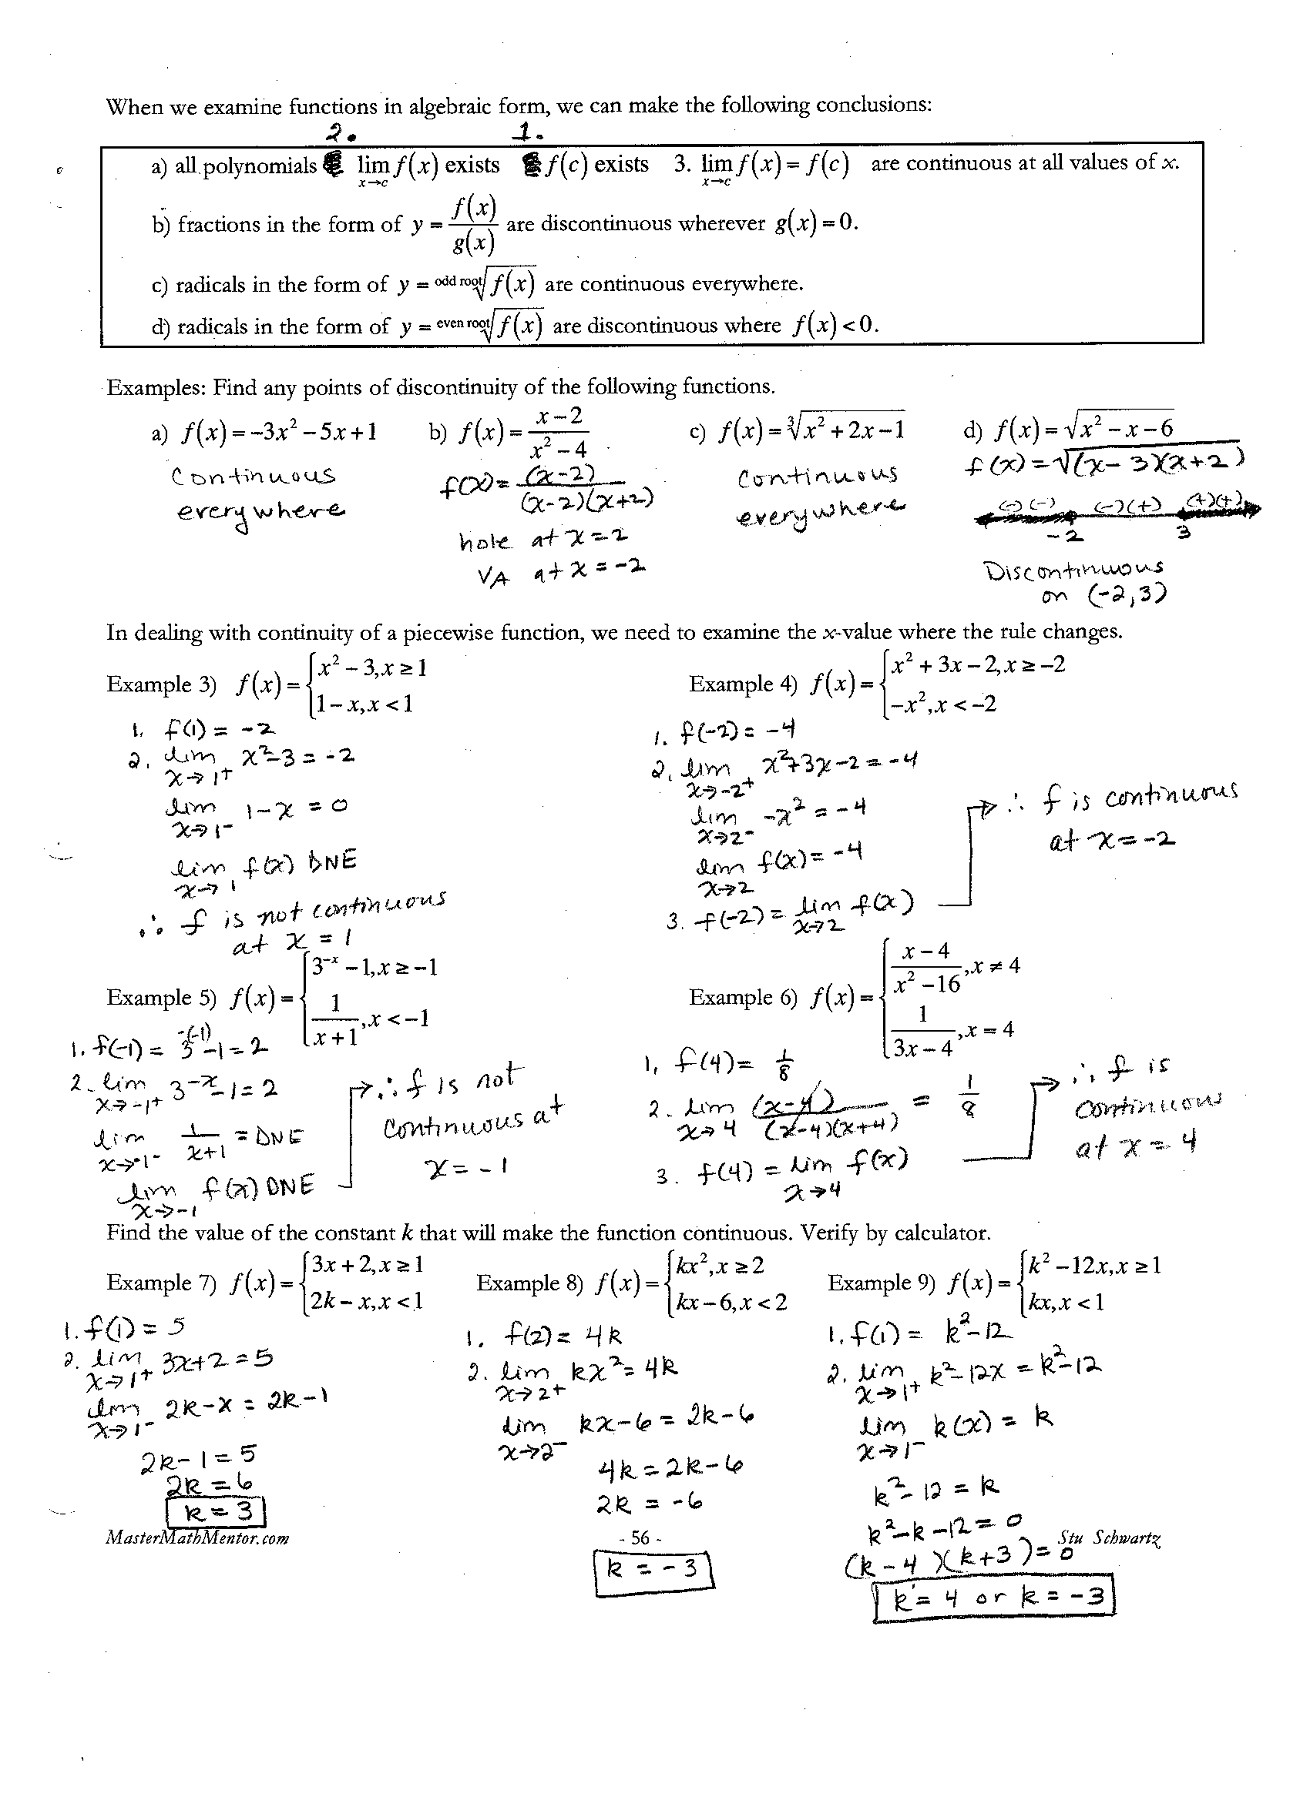 When we examine functions in algebraic form, we can make the following conclusions:
2. 1.
a) all polynomials lim x→c f(x) exists f(c) exists 3. lim x→c f(x) = f(c) are continuous at all values of x.
b) fractions in the form of y = f(x)/g(x) are discontinuous wherever g(x) = 0.
c) radicals in the form of y = odd root√f(x) are continuous everywhere.
d) radicals in the form of y = even root√f(x) are discontinuous where f(x) < 0.
Examples: Find any points of discontinuity of the following functions.
a) f(x) = -3x² - 5x + 1
continuous
everywhere
b) f(x) = (x-2)/(x²-4)
f(x) = (x-2)/((x-2)(x+2))
hole at x = 2
VA at x = -2
c) f(x) = ∛(x² + 2x - 1)
continuous
everywhere
d) f(x) = √(x² - x - 6)
f(x) = √((x-3)(x+2))
(-)(-) (-)(+) (+)(+)
-2 3
Discontinuous
on (-2,3)
In dealing with continuity of a piecewise function, we need to examine the x-value where the rule changes.
Example 3) f(x) = { x² - 3, x ≥ 1
1 - x, x < 1
1. f(1) = -2
2. lim x→1⁺ x²-3 = -2
lim x→1⁻ 1-x = 0
lim x→1 f(x) DNE
∴ f is not continuous
at x = 1
Example 4) f(x) = { x² + 3x - 2, x ≥ -2
-x², x < -2
1. f(-2) = -4
2. lim x→-2⁺ x²+3x-2 = -4
lim x→2⁻ -x² = -4
lim x→2 f(x) = -4
3. f(-2) = lim x→2 f(x)
→ ∴ f is continuous
at x = -2
Example 5) f(x) = { 3⁻ˣ - 1, x ≥ -1
1/(x+1), x < -1
1. f(-1) = 3^-(-1) -1 = 2
2. lim x→-1⁺ 3⁻ˣ-1 = 2
lim x→-1⁻ 1/(x+1) = DNE
lim x→-1 f(x) DNE
→ ∴ f is not
continuous at
x = -1
Example 6) f(x) = { (x-4)/(x²-16), x ≠ 4
1/(3x-4), x = 4
1. f(4) = 1/8
2. lim x→4 (x-4)/((x-4)(x+4)) = 1/8
3. f(4) = lim x→4 f(x)
→ ∴ f is
continuous
at x = 4
Find the value of the constant k that will make the function continuous. Verify by calculator.
Example 7) f(x) = { 3x + 2, x ≥ 1
2k - x, x < 1
1. f(1) = 5
2. lim x→1⁺ 3x+2 = 5
lim x→1⁻ 2k-x = 2k-1
2k-1 = 5
2k = 6
k = 3
Example 8) f(x) = { kx², x ≥ 2
kx - 6, x < 2
1. f(2) = 4k
2. lim x→2⁺ kx² = 4k
lim x→2⁻ kx-6 = 2k-6
4k = 2k-6
2k = -6
k = -3
Example 9) f(x) = { k² - 12x, x ≥ 1
kx, x < 1
1. f(1) = k²-12
2. lim x→1⁺ k²-12x = k²-12
lim x→1⁻ k(x) = k
k²-12 = k
k²-k-12 = 0
(k-4)(k+3) = 0
k = 4 or k = -3
MasterMathMentor.com - 56 - Stu Schwartz